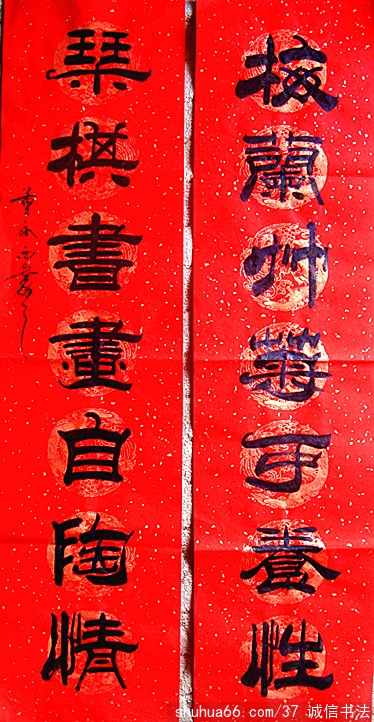 梅蘭艸菊可養性
琹棋書畫自陶情
shuhua66.com/37 诚信书法